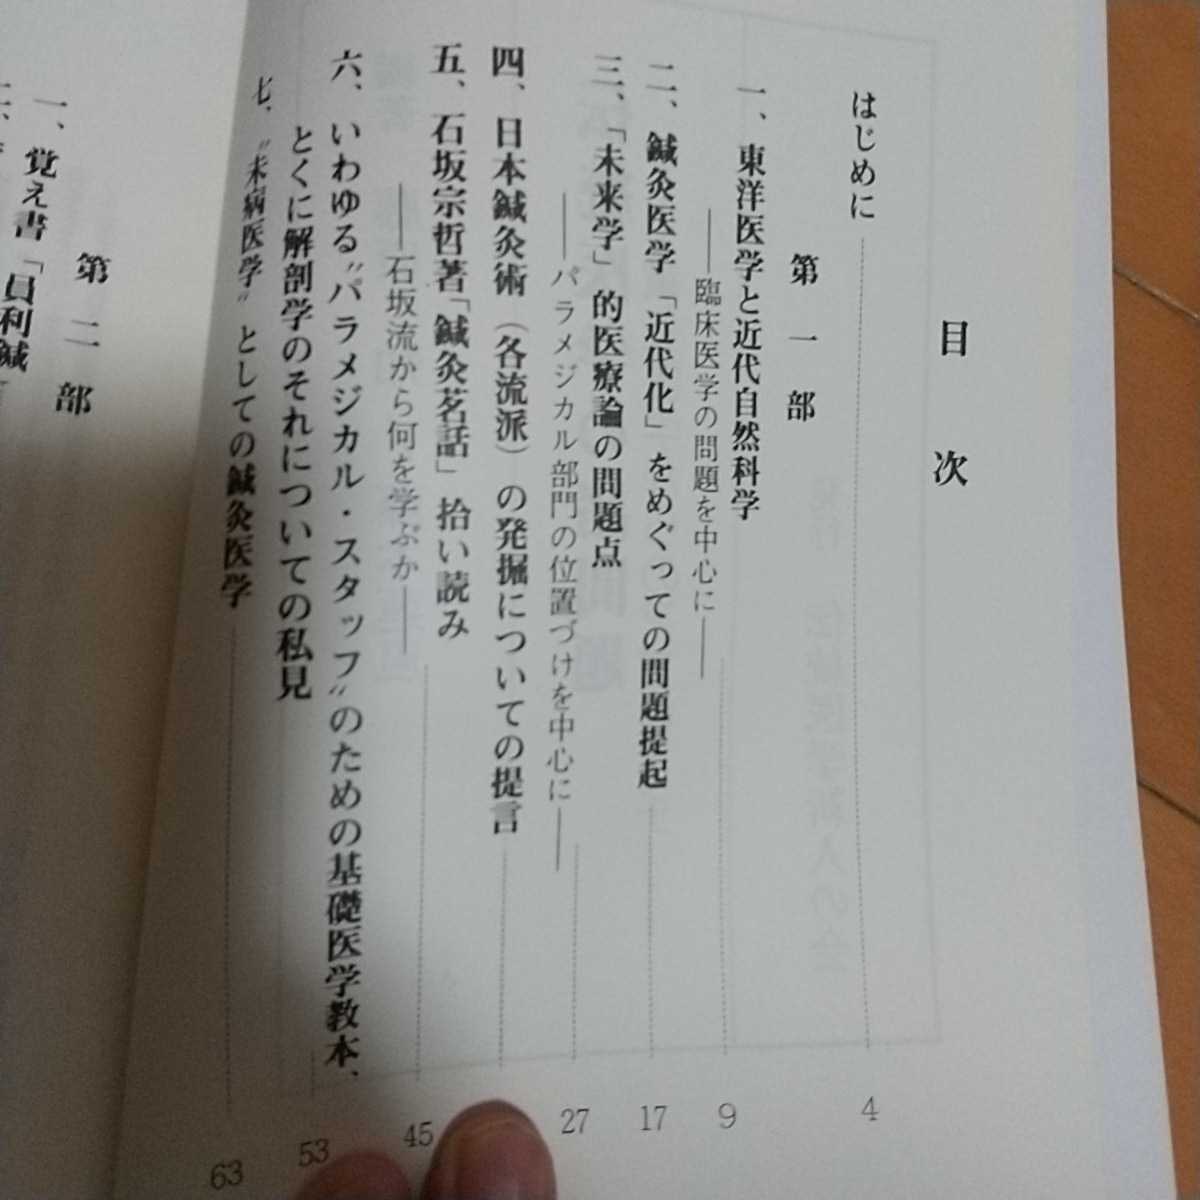 目次
はじめに 4
第一部
一、東洋医学と近代自然科学
――臨床医学の問題を中心に―― 9
二、鍼灸医学「近代化」をめぐっての問題提起 17
三、「未来学」的医療論の問題点
――パラメジカル部門の位置づけを中心に―― 27
四、日本鍼灸術（各流派）の発掘についての提言
五、石坂宗哲著「鍼灸茗話」拾い読み
――石坂流から何を学ぶか―― 45
六、いわゆる〝パラメジカル・スタッフ〟のための基礎医学教本、
とくに解剖学のそれについての私見 53
七、〝未病医学〟としての鍼灸医学 63
第二部
一、覚え書「員利鍼
二、